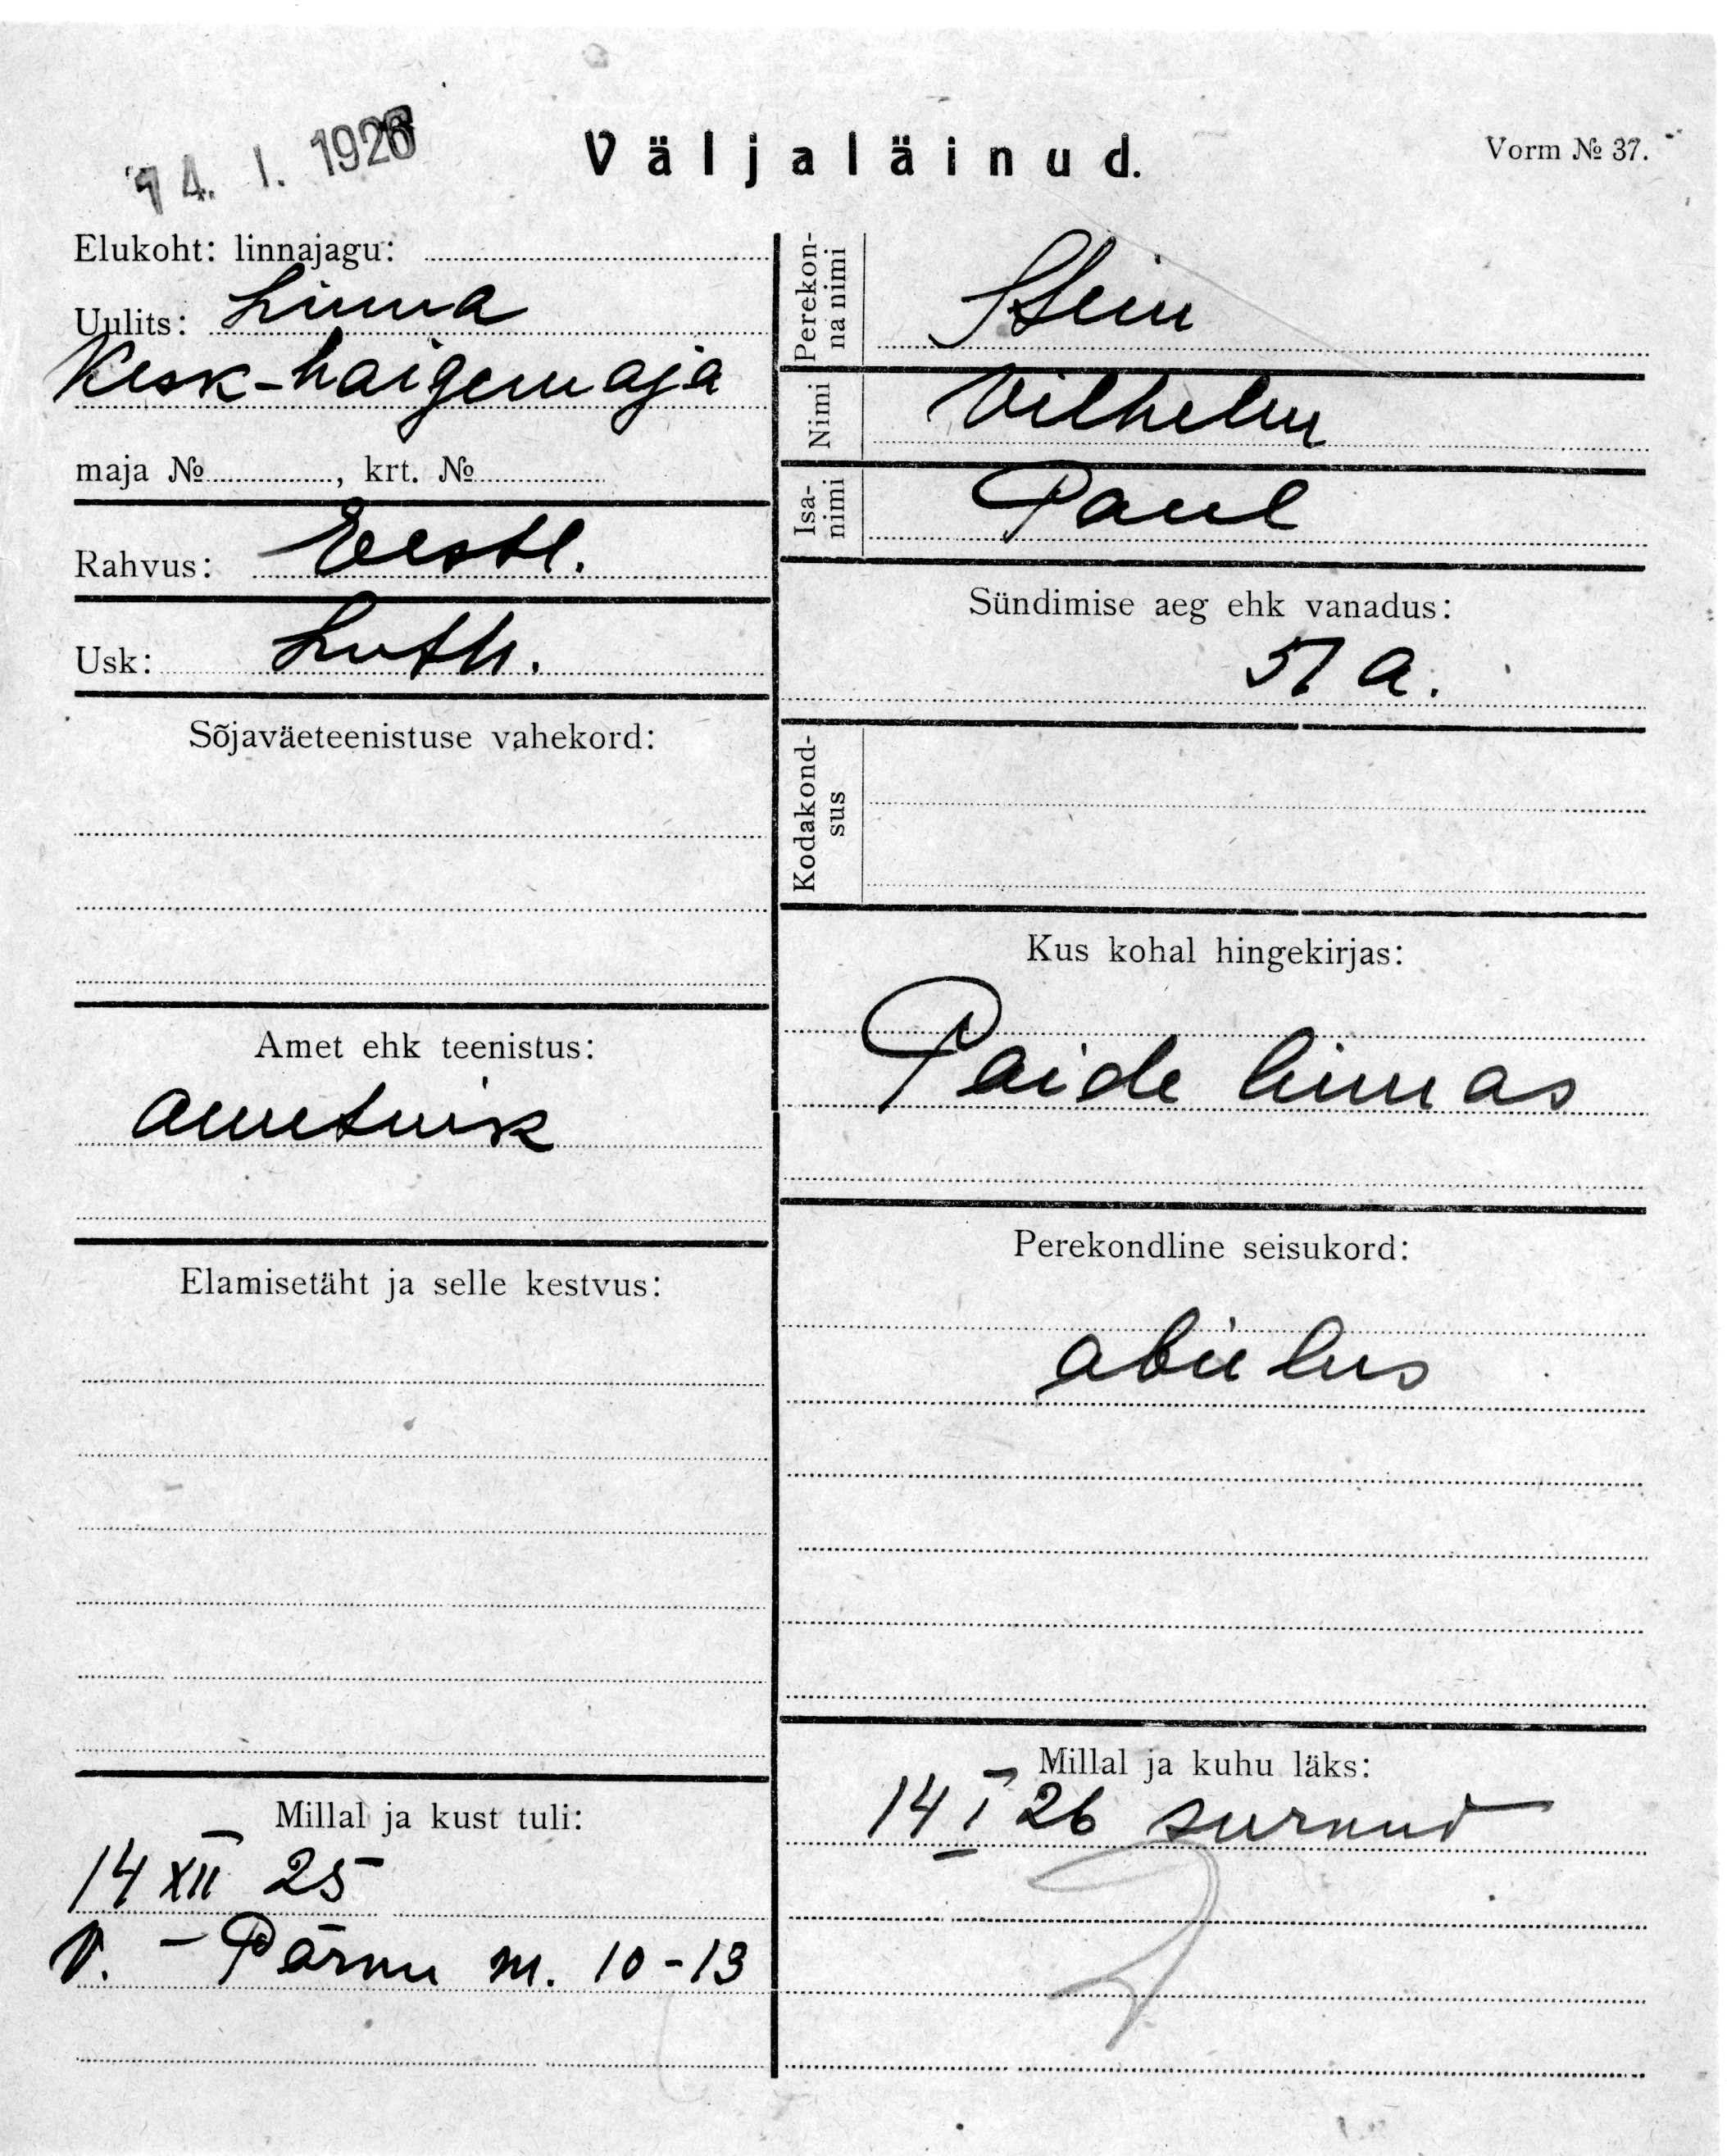 14. I. 1926
Väljaläinud.
Vorm № 37.
Elukoht: linnajagu:
Uulits: Linna
Kesk-haigemaja
maja №, krt. №
Rahvus: Eestl.
Usk: Luth.
Sõjaväeteenistuse vahekord:
Amet ehk teenistus:
ametnik
Elamisetäht ja selle kestvus:
Millal ja kust tuli:
14 XII 25
V. - Pärnu m. 10-13
Perekon-
na nimi
Stein
Nimi
Vilhelm
Isa-
nimi
Paul
Sündimise aeg ehk vanadus:
51 a.
Kodakond-
sus
Kus kohal hingekirjas:
Paide linnas
Perekondline seisukord:
abielus
Millal ja kuhu läks:
14 I 26 surnud